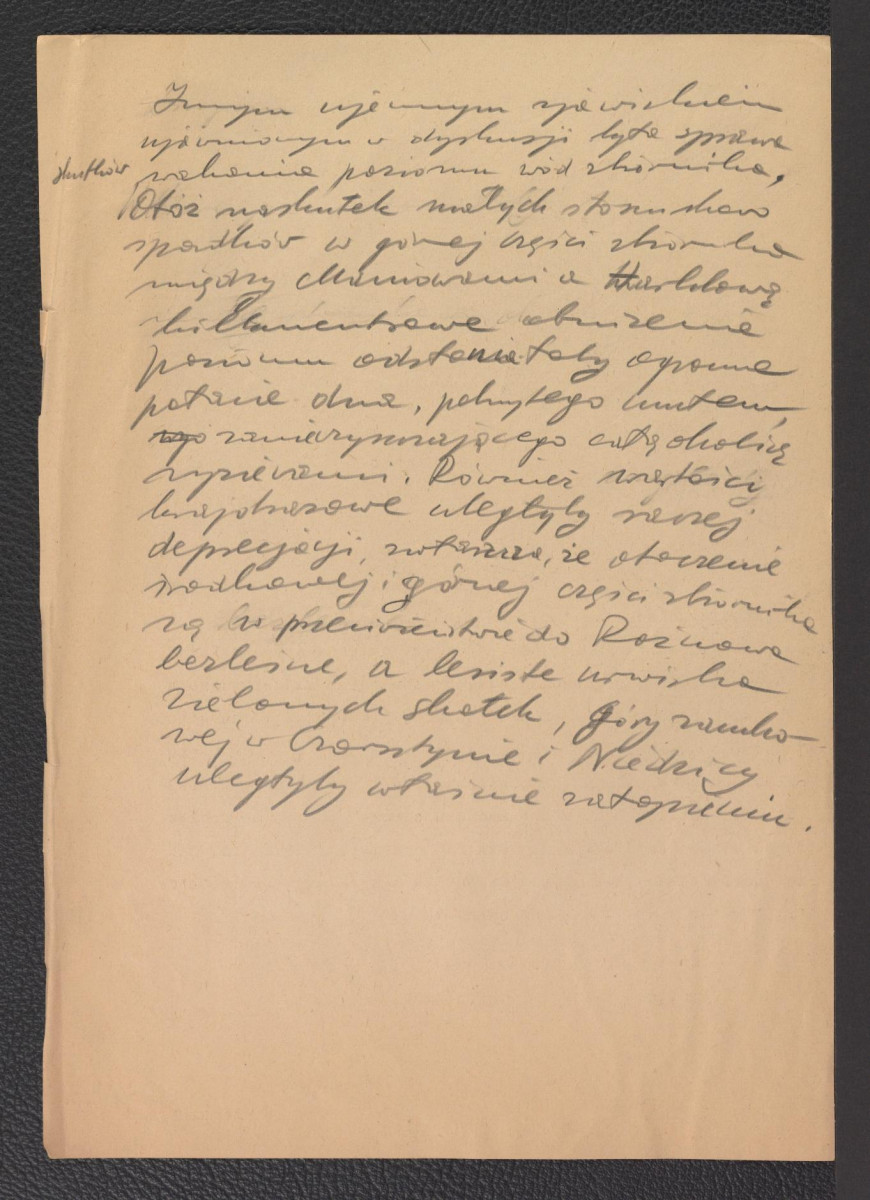 Innym ujemnym zjawiskiem
ujawnionym w dyskusji była sprawa
skutków
wahania poziomu wód zbiornika,
Otóż naskutek małych stosunkowo
spadków w górnej części zbiornika
między Maniowami a Harklową
kilkumetrowe obniżenie
poziomu odsłaniałoby ogromne
połacie dna, pokrytego mułem,
zanieczyszczającego całą okolicę
wyziewami. Również wartości
krajobrazowe uległyby raczej
deprecjacji, zwłaszcza, że otoczenie
środkowej i górnej części zbiornika
są w przeciwieństwie do Rożnowa
bezleśne, a lesiste urwiska
Zielonych Skałek, Góry zamko-
wej w Czorsztynie i Niedzicy
uległyby właśnie zatopieniu.